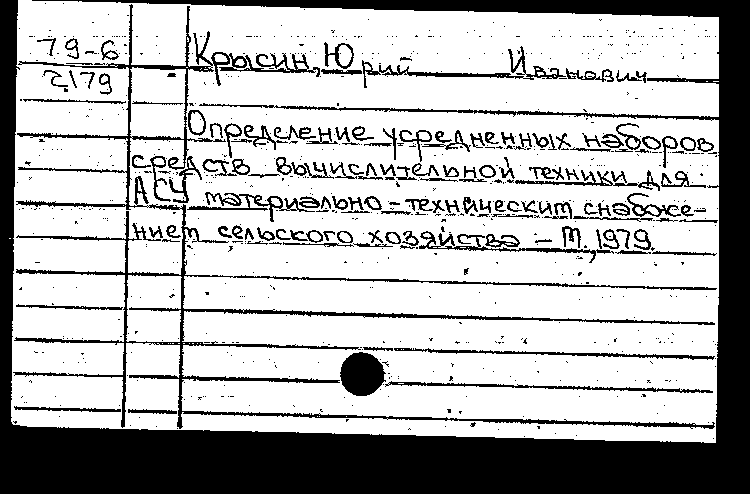 79-6 Крысин, Юрий Иванович
2179
Определение усредненных наборов
средств вычислительной техники для
АСУ материально-техническим снабже-
нием сельского хозяйства - М., 1979